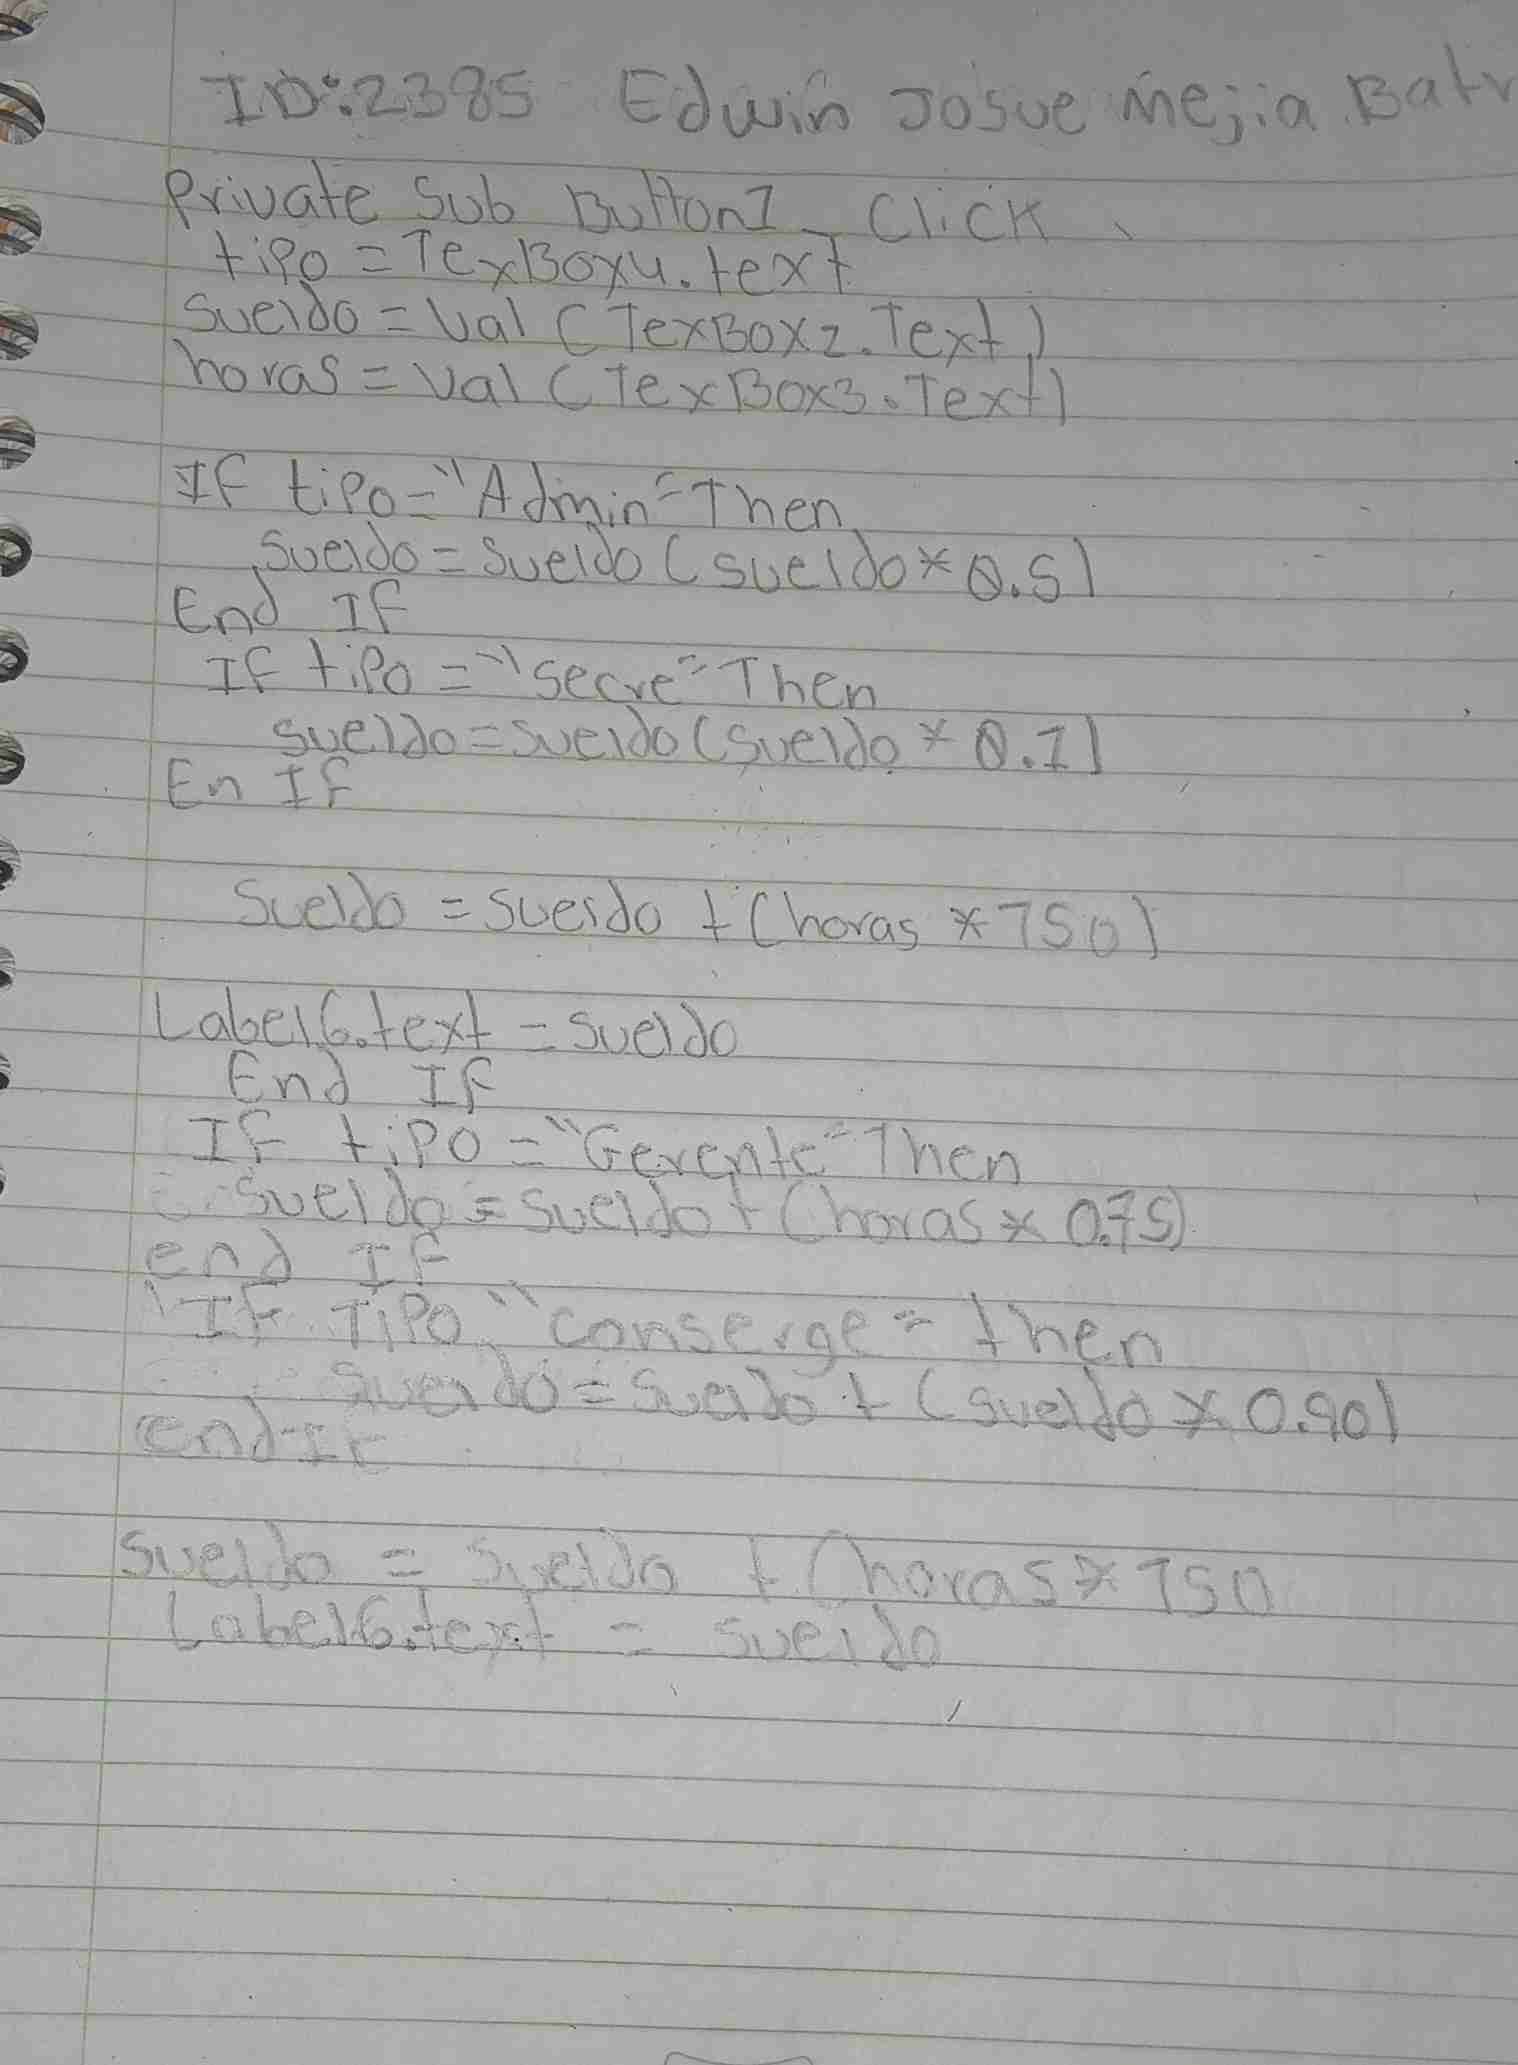 ID:2385 Edwin Josue Mejia Batr
Private Sub Button1_Click
tipo = TexBox4.text
Sueldo = Val (TexBox2.Text)
horas = Val (TexBox3.Text)
If tipo = "Admin" Then
Sueldo = Sueldo (sueldo * 0.5)
End If
If tipo = "secre" Then
sueldo = sueldo (sueldo * 0.1)
En If
Sueldo = sueldo + (horas * 750)
Label6.text = sueldo
End If
If tipo = "Gerente" Then
sueldo = sueldo + (horas * 0.75)
end If
If Tipo "conserge" then
sueldo = sueldo + (sueldo * 0.90)
end If
sueldo = sueldo + (horas * 750
Label6.text = sueldo